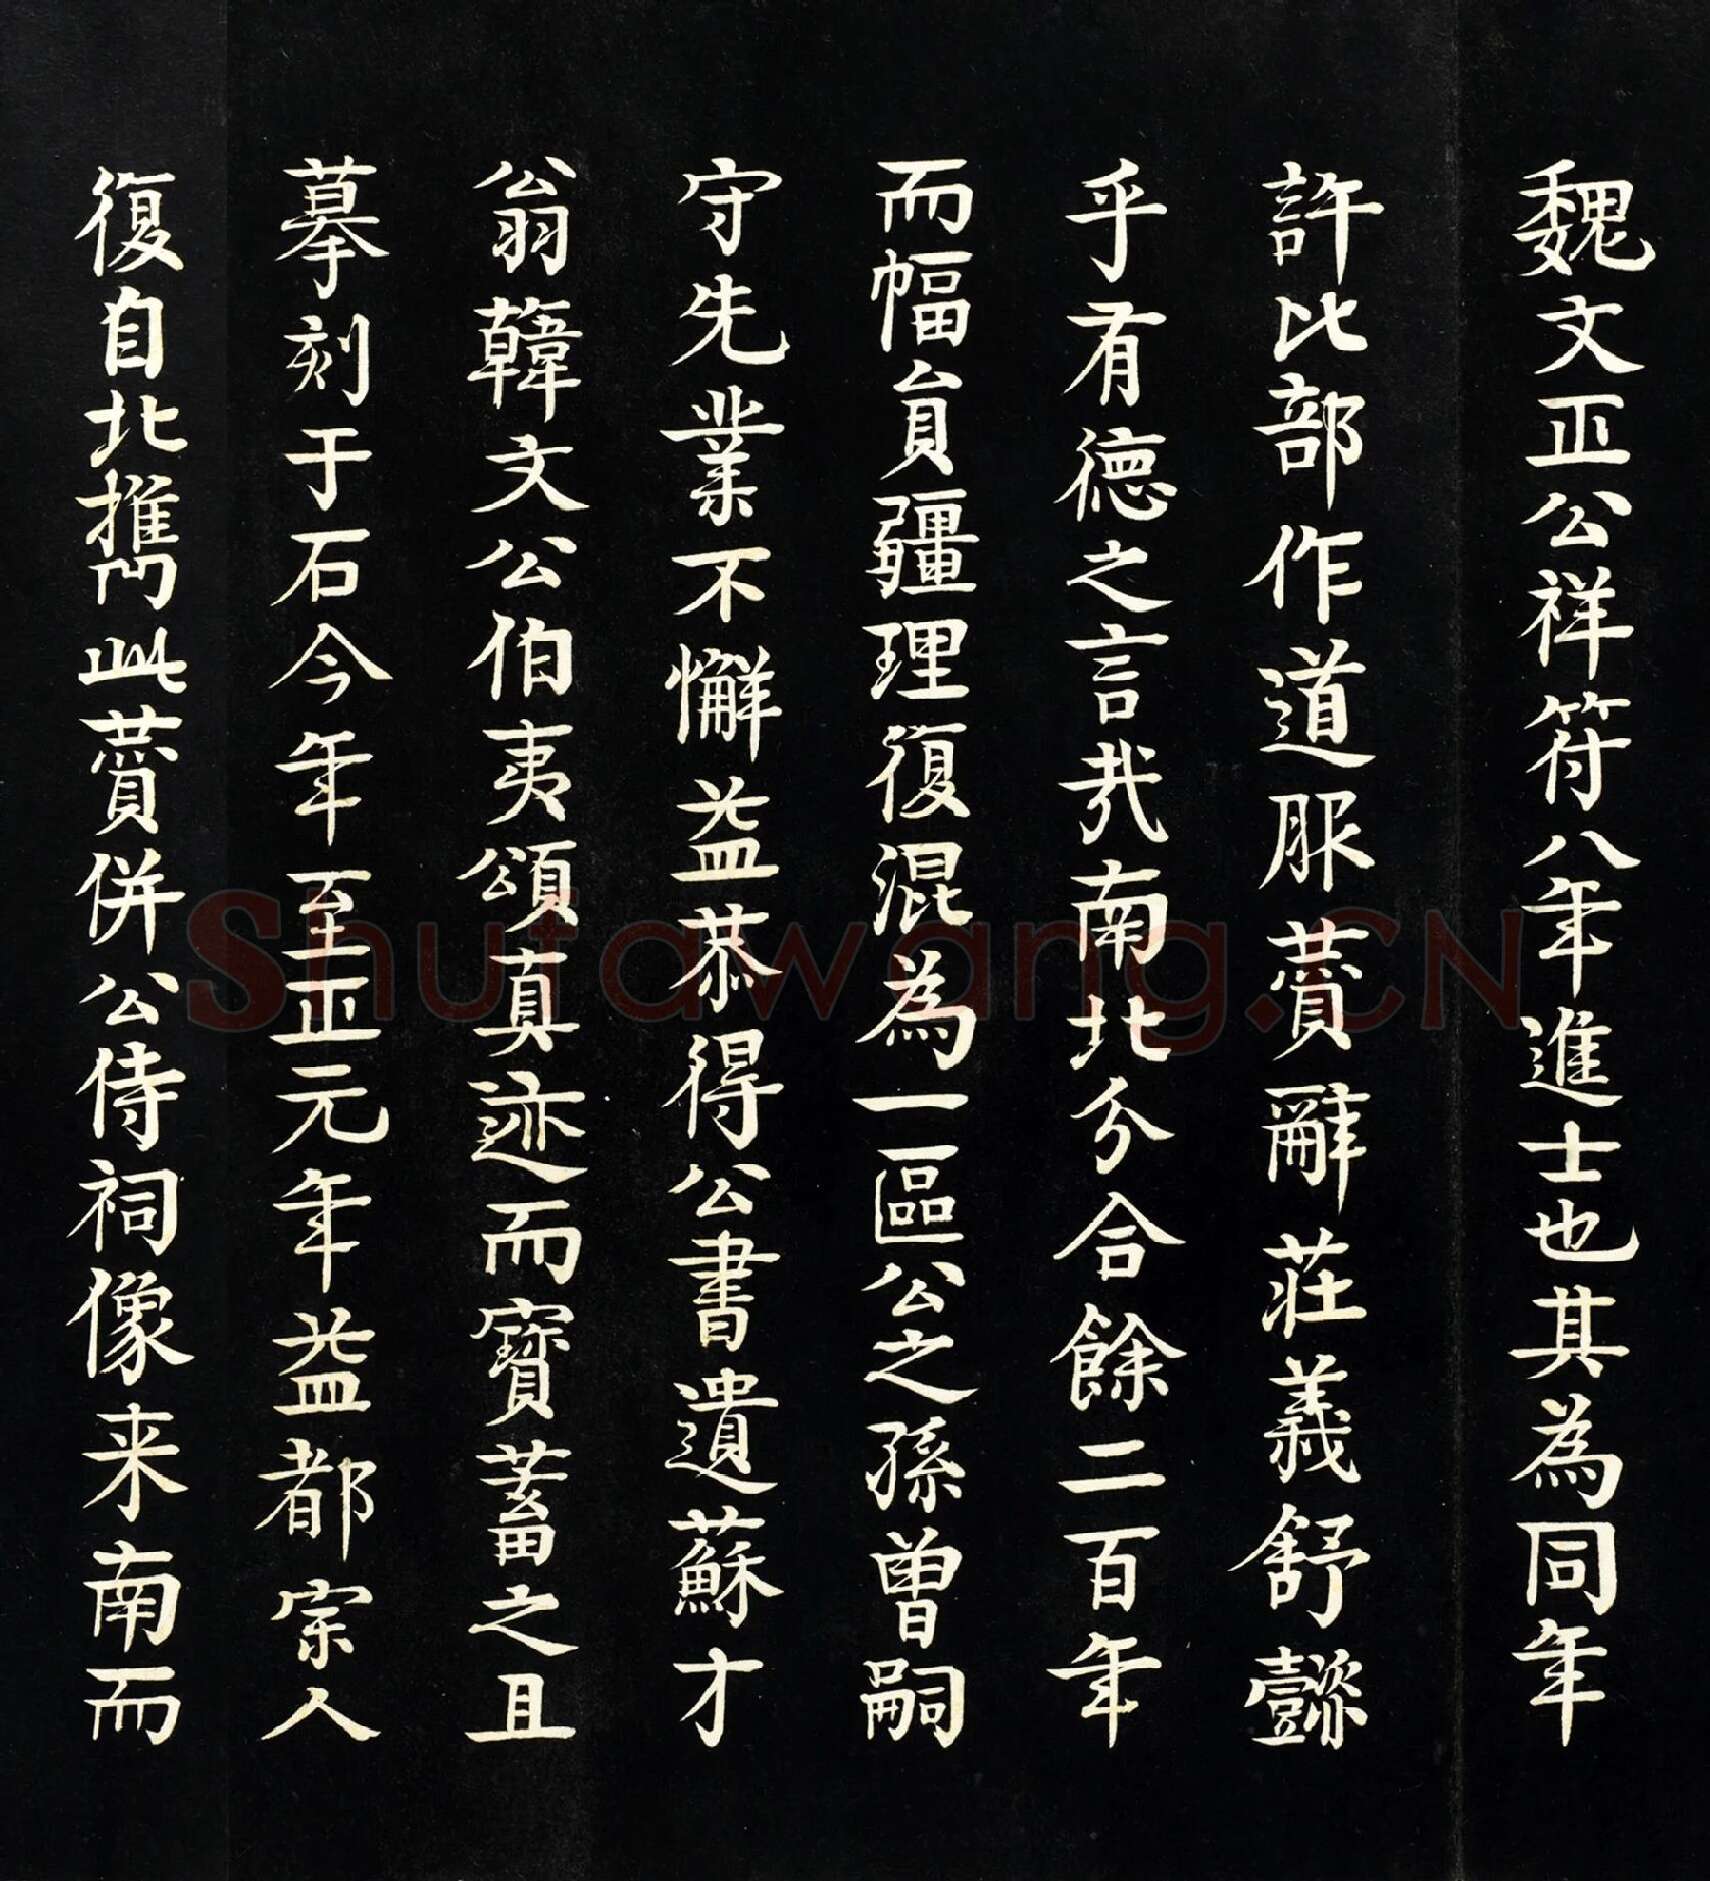 魏文正公祥符八年進士也其為同年
許比部作道服賛辭莊義舒懿
乎有德之言哉南北分合餘二百年
而幅員疆理復混為一區公之孫曾嗣
守先業不懈益恭得公書遺蘇才
翁韓文公伯夷頌真迹而寶蓄之且
摹刻于石今年至正元年益都宗人
復自北攜此賛併公侍祠像来南而
Shufawang.CN